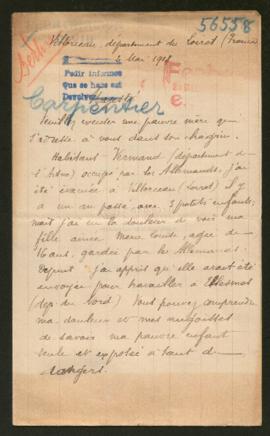 56558
Villoreau, département du Loiret (France)
4 Mai 1918
Pedir informes
que se hara est
Devolver
Carpentier
Veuillez excuser une pauvre mère qui
s'adresse à vous dans son chagrin.
Habitant Vermand (département de
l'Aisne) occupé par les Allemands, j'ai
été évacuée à Villoreau (Loiret) il y
a un an passé avec 3 petits enfants;
mais j'ai eu la douleur de voir ma
fille aînée Marie Louise, âgée de
16 ans, gardée par les Allemands.
Depuis j'ai appris qu'elle avait été
envoyée pour travailler à
(dép. du Nord) Vous pouvez comprendre
ma douleur et mes angoisses
de savoir ma pauvre enfant
seule et exposée à tant de
dangers.